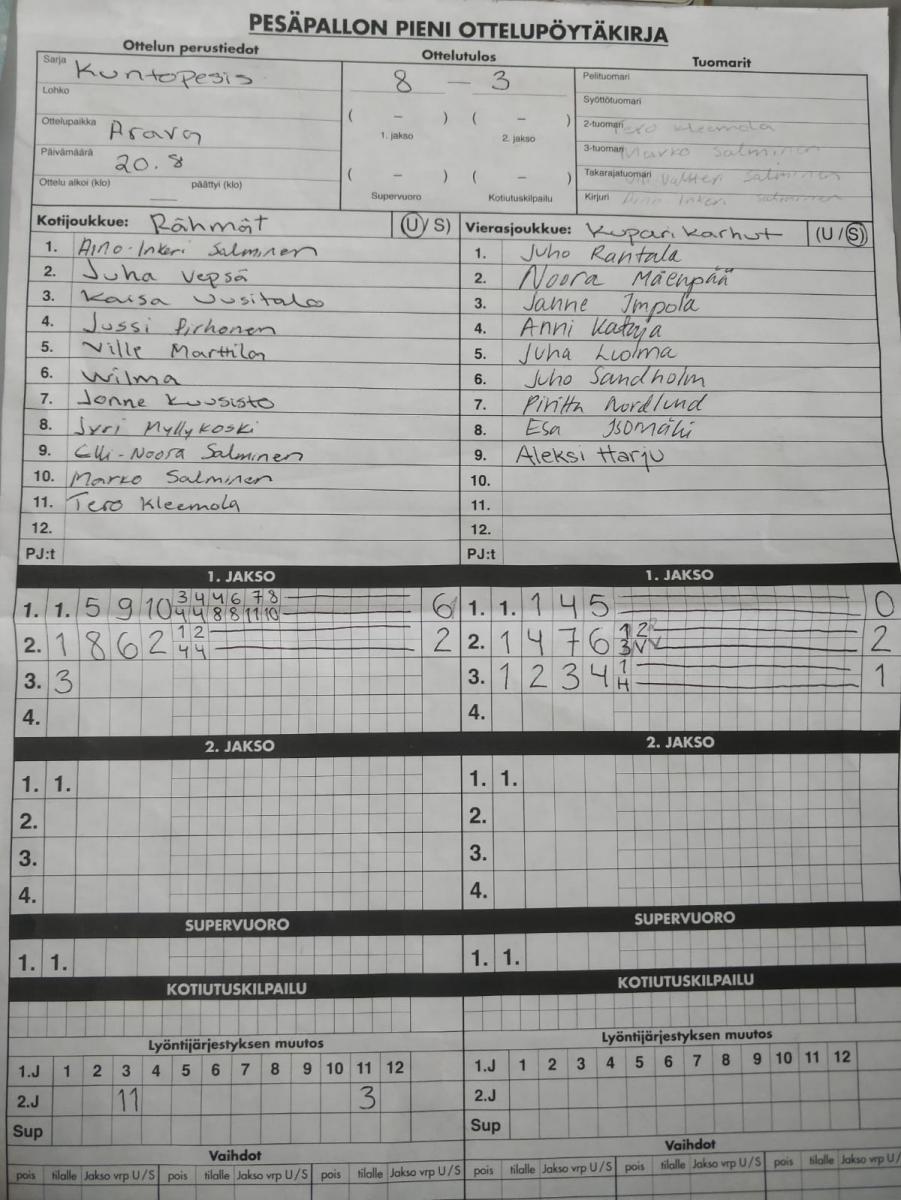 PESÄPALLON PIENI OTTELUPÖYTÄKIRJA
Ottelun perustiedot
Sarja Kuntopesis
Lohko
Ottelupaikka Arava
Päivämäärä 20.8
Ottelu alkoi (klo) päättyi (klo)
Ottelutulos
8 – 3
( – ) ( – )
1. jakso 2. jakso
( – ) ( – )
Supervuoro Kotiutuskilpailu
Tuomarit
Pelituomari
Syöttötuomari
2-tuomari Tero Kleemola
3-tuomari Marko Salminen
Takarajatuomari Valtteri Salminen
Kirjuri Aino Inkeri Salminen
Kotijoukkue: Rähmät (U/S)
1. Aino-Inkeri Salminen
2. Juha Vepsä
3. Kaisa Uusitalo
4. Jussi Pirhonen
5. Ville Marttila
6. Wilma
7. Jonne Kuusisto
8. Jyri Myllykoski
9. Elli-Noora Salminen
10. Marko Salminen
11. Tero Kleemola
12.
PJ:t
Vierasjoukkue: Kuparikarhut (U/S)
1. Juho Rantala
2. Noora Mäenpää
3. Janne Impola
4. Anni Kataja
5. Juha Luoma
6. Juho Sandholm
7. Piritta Nordlund
8. Esa Isomäki
9. Aleksi Harju
10.
11.
12.
PJ:t
1. JAKSO
1. 1. 5 9 10 3 4 4 6 7 8 6
4 4 8 8 11 10
2. 1 8 6 2 1 2 2
4 4
3. 3
4.
1. JAKSO
1. 1. 1 4 5 0
2. 1 4 7 6 1 2 2
3 V
3. 1 2 3 4 1 1
H
4.
2. JAKSO
1. 1.
2.
3.
4.
2. JAKSO
1. 1.
2.
3.
4.
SUPERVUORO
1. 1.
SUPERVUORO
1. 1.
KOTIUTUSKILPAILU
KOTIUTUSKILPAILU
Lyöntijärjestyksen muutos
1.J 1 2 3 4 5 6 7 8 9 10 11 12
2.J 11 3
Sup
Lyöntijärjestyksen muutos
1.J 1 2 3 4 5 6 7 8 9 10 11 12
2.J
Sup
Vaihdot
pois tilalle Jakso vrp U/S pois tilalle Jakso vrp U/S pois tilalle Jakso vrp U/S
Vaihdot
pois tilalle Jakso vrp U/S pois tilalle Jakso vrp U/S pois tilalle Jakso vrp U/